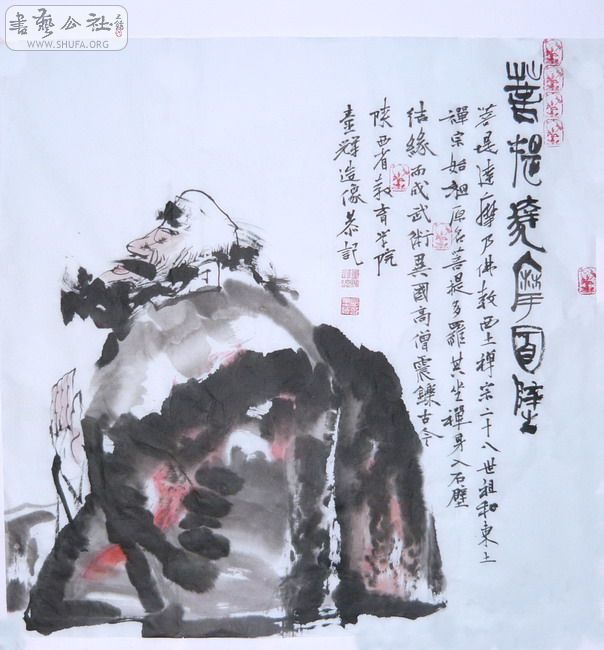 書藝公社
WWW.SHUFA.ORG
菩提達摩面壁
菩提達摩乃佛教西土禪宗二十八世祖和東土
禪宗始祖原名菩提多羅其坐禪身入石壁
結緣而成武術異國高僧震鑠古今
陕西省教育学院
造像恭記